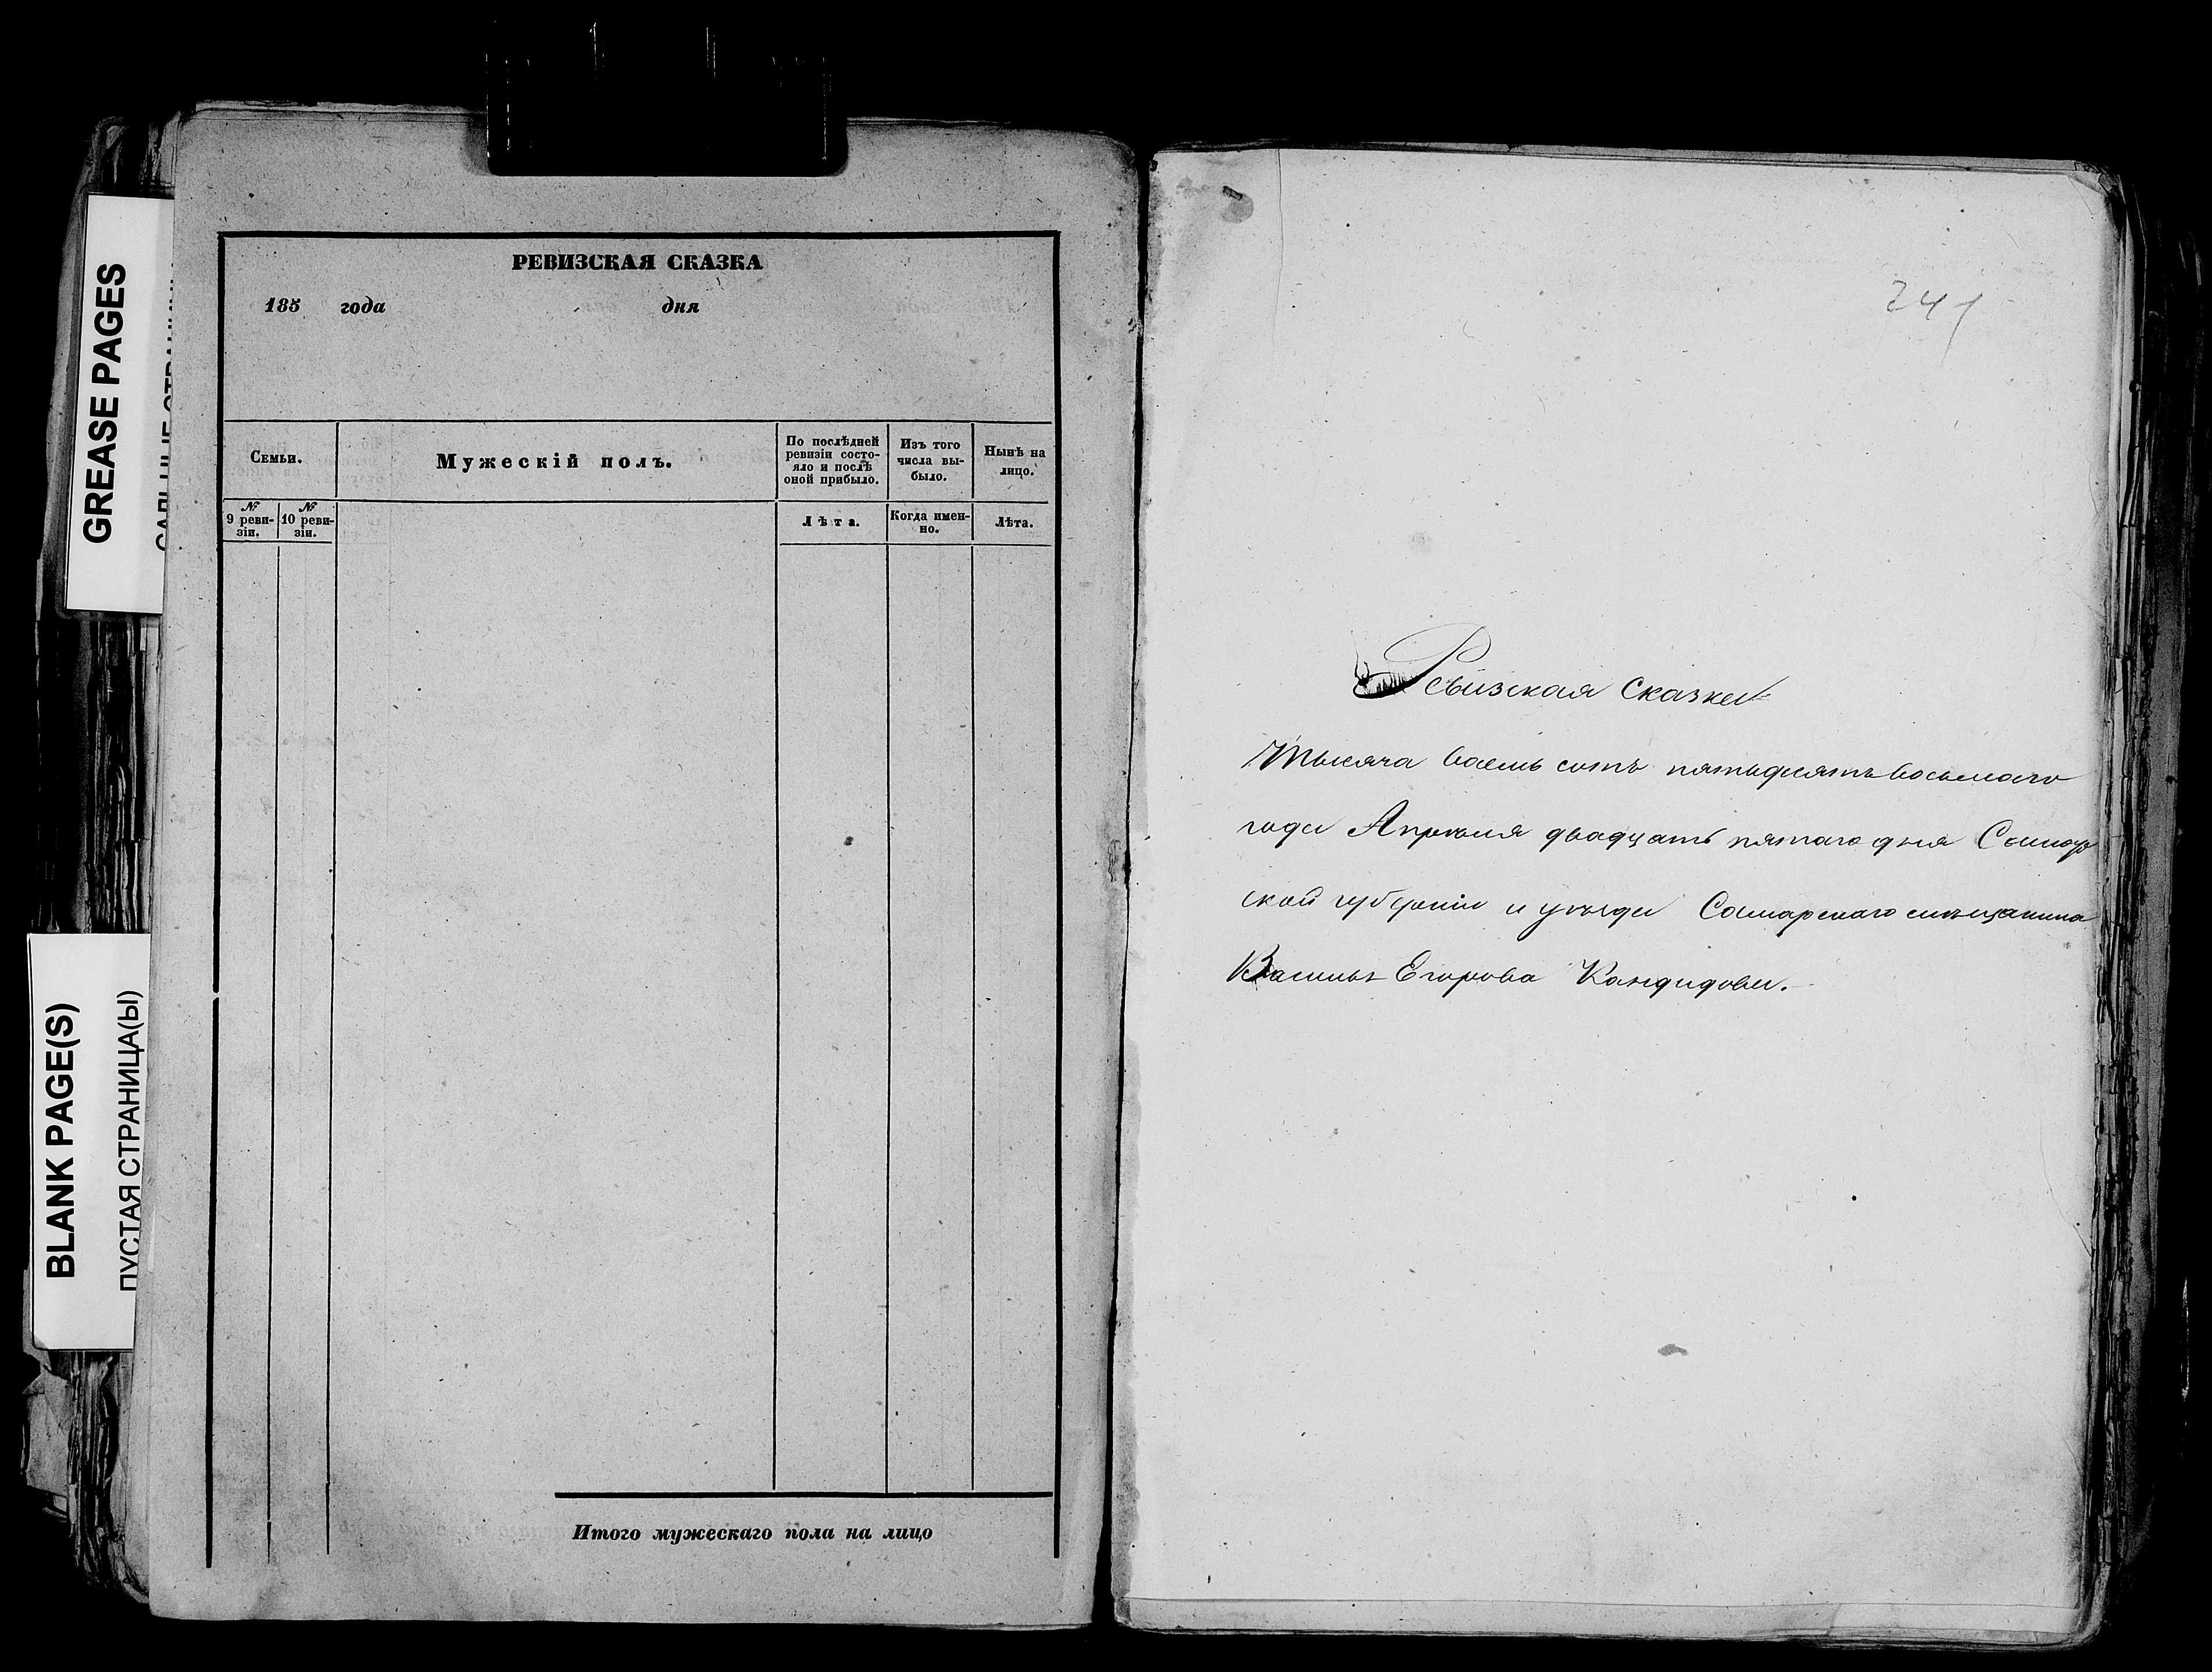 GREASE PAGES
BLANK PAGE(S)
ПУСТАЯ СТРАНИЦА(Ы)
РЕВИЗСКАЯ СКАЗКА
185 года дня
Семьи.
Мужескій полъ.
По послѣдней
ревизіи состо-
яло и послѣ
оной прибыло.
Изъ того
числа вы-
было.
Нынѣ на
лицо.
№
9 реви-
зіи.
№
10 реви-
зіи.
Лѣта.
Когда имен-
но.
Лѣта.
Итого мужескаго пола на лицо
241
Ревизская сказка
Тысяча восемь сотъ пятьдесятъ восьмаго
года Апрѣля двадцать пятаго дня Самар
ской губерніи и уѣзда Самарскаго мѣщанина
Василья Егорова Кандидова.